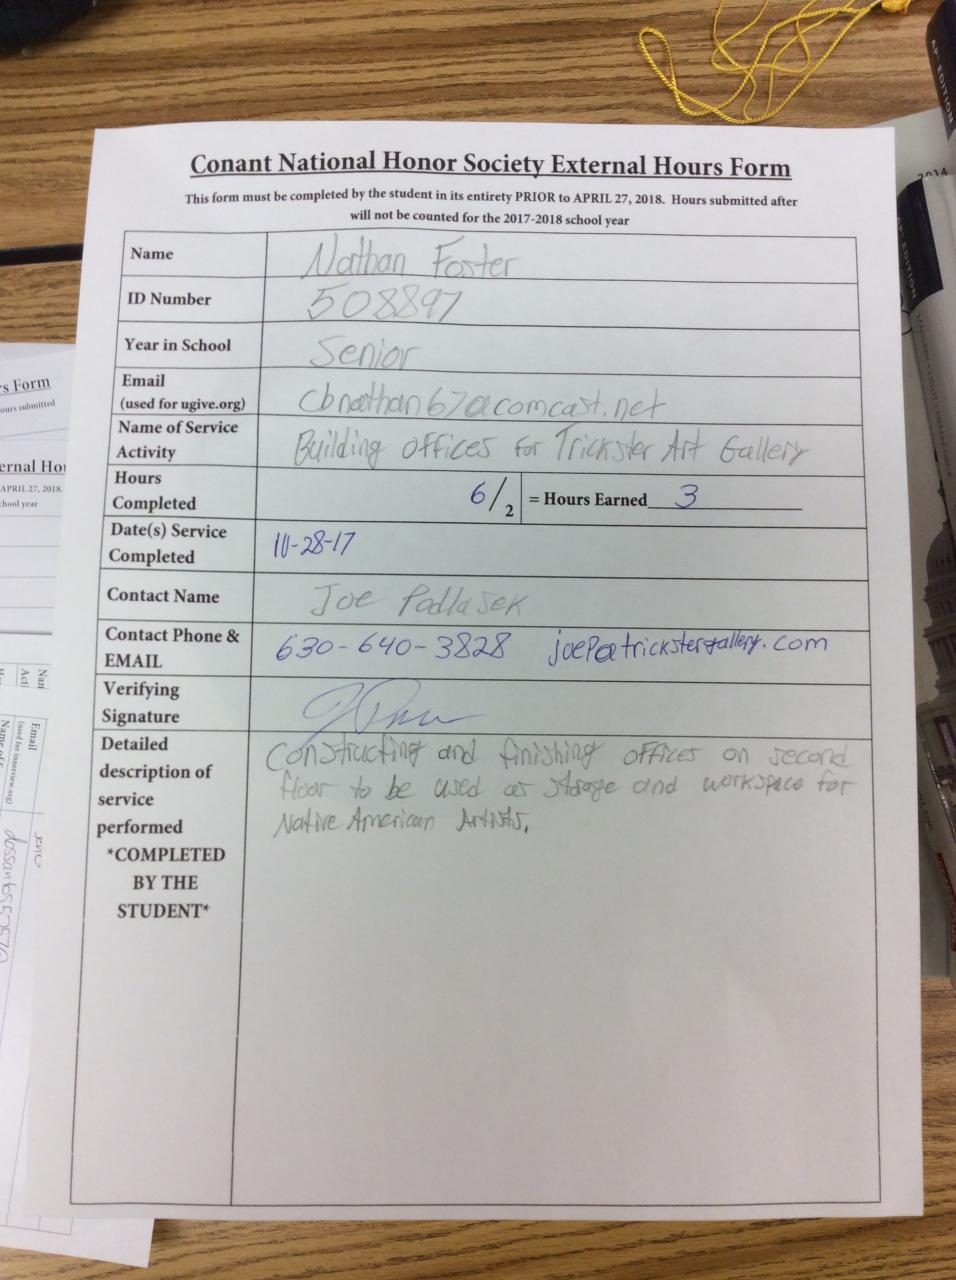 Conant National Honor Society External Hours Form
This form must be completed by the student in its entirety PRIOR to APRIL 27, 2018. Hours submitted after
will not be counted for the 2017-2018 school year
Name Nathan Foster
ID Number 508897
Year in School Senior
Email
(used for ugive.org) cbnathan67@comcast.net
Name of Service
Activity Building offices for Trickster Art Gallery
Hours
Completed 6/2 = Hours Earned 3
Date(s) Service
Completed 10-28-17
Contact Name Joe Podlasek
Contact Phone &
EMAIL 630-640-3828 joeP@trickstergallery.com
Verifying
Signature
Detailed
description of
service
performed
*COMPLETED
BY THE
STUDENT*
Constructing and finishing offices on second
floor to be used as storage and workspace for
Native American Artists.
s Form
ours submitted
ernal Ho
APRIL 27, 2018.
chool year
Email
(used for innerview.org)
AP® EDITION
2014
AP® EDITION